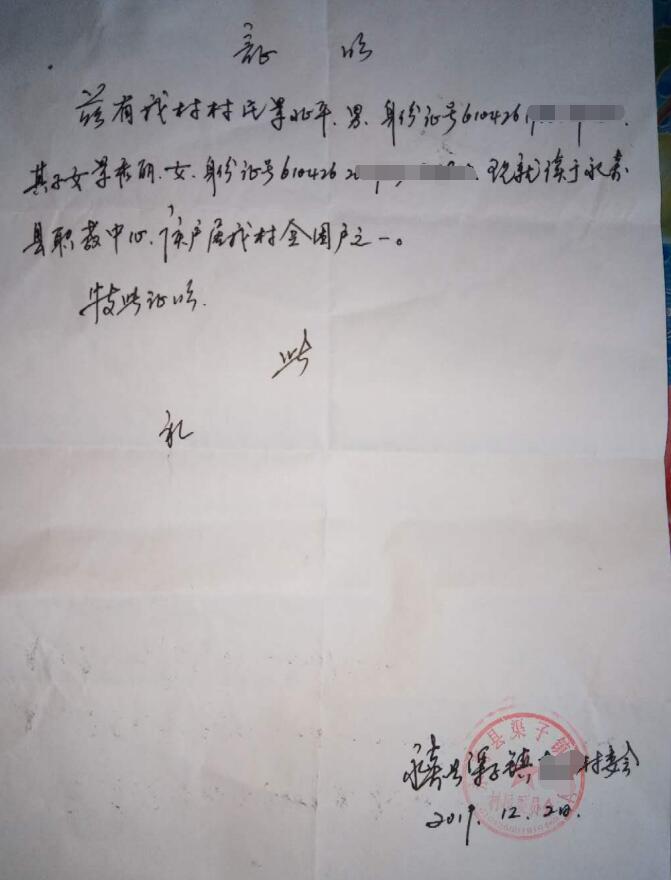 证明
兹有我村村民 平、男、身份证号610426
其子女 女、身份证号610426 2 现就读于永寿
县职教中心、该户属我村贫困户之一。
特此证明.
此
礼
永寿县渠子镇 村委会
2019.12.2日.
县渠子镇
村民委员会